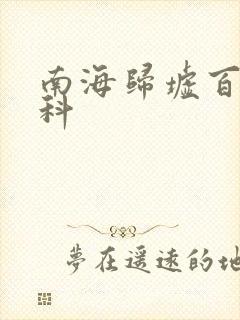 南海歸墟百
科
夢在遥遠的地